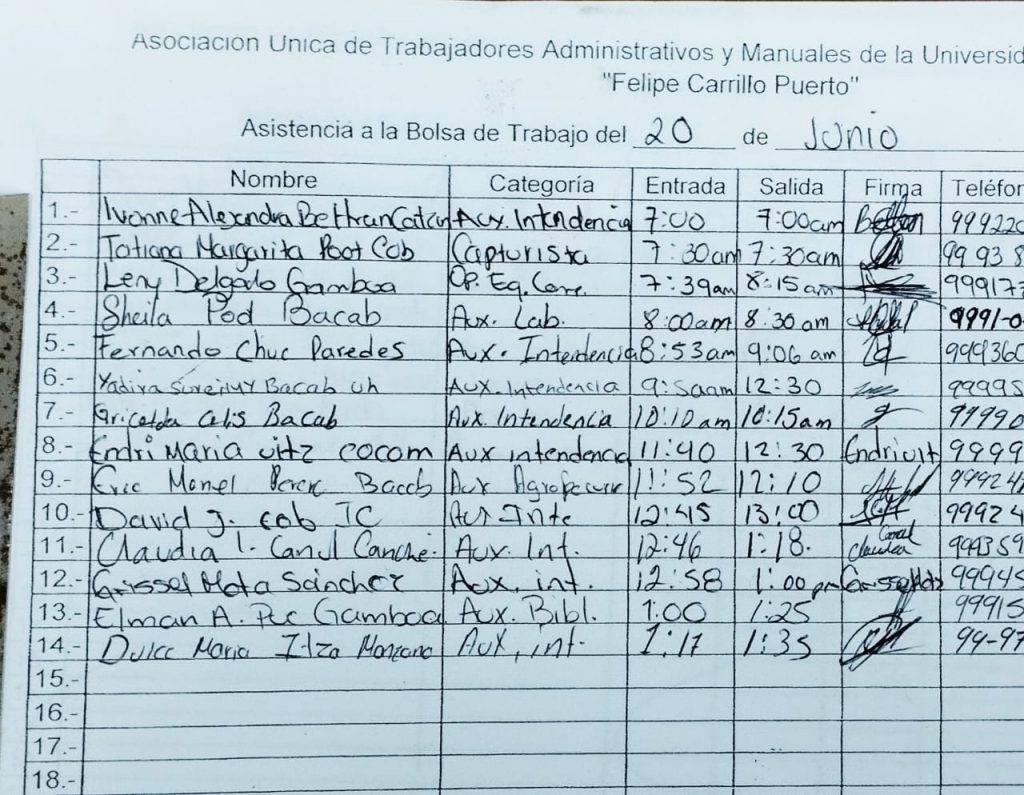 Asociación Unica de Trabajadores Administrativos y Manuales de la Universid
"Felipe Carrillo Puerto"
Asistencia a la Bolsa de Trabajo del 20 de Junio
Nombre Categoría Entrada Salida Firma Teléfon
1.- Ivonne Alejandra Beltran Catzin Aux. Intendencia 7:00 7:00am 999220
2.- Tatiana Margarita Poot Cob Capturista 7:30am 7:30am 99 93 8
3.- Leny Delgado Gamboa Op. Eq. 7:39am 8:15am 999177
4.- Sheila Pod Bacab Aux. Lab. 8:00am 8:30am 9991-0
5.- Fernando Chuc Paredes Aux. Intendencia 8:53am 9:06 am 999360
6.- Yadira Bacab Uh Aux. Intendencia 12:30 99995
7.- Celis Bacab Aux. Intendencia 10:10am 10:15am 99990
8.- Endri Maria Uitz Cocom Aux intendencia 11:40 12:30 Endriuit 9999
9.- Eric Bacab Aux 11:52 12:10 99924
10.- David J. Cob Aux Inte 12:45 13:00 99924
11.- Claudia I. Canul Canché. Aux. Int. 12:46 1:18. Claudia Canul 999359
12.- Grissel Mota Sánchez Aux. int. 12:58 1:00 pm 99945
13.- Elman A. Puc Gamboa Aux. Bibl. 1:00 1:25 99915
14.- Dulce Maria Itza Manzano Aux, int. 1:17 1:35 99-97
15.-
16.-
17.-
18.-